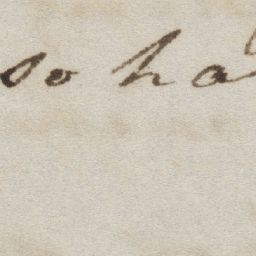 so ha